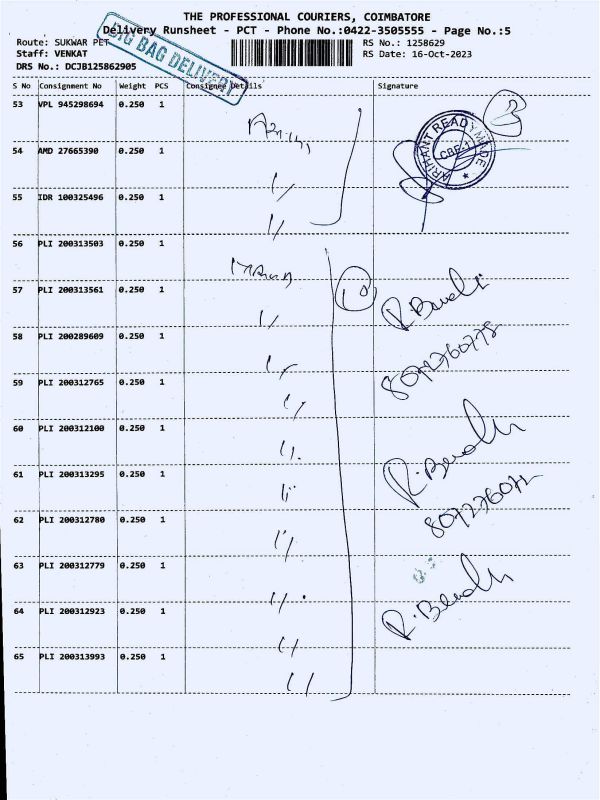 THE PROFESSIONAL COURIERS, COIMBATORE
Delivery Runsheet - PCT - Phone No.:0422-3505555 - Page No.:5
Route: SUKWAR PET
RS No.: 1258629
Staff: VENKAT
RS Date: 16-Oct-2023
DRS No.: DCJB125862905
BIG BAG DELIVERY
S No Consignment No Weight PCS Consignee Details Signature
53 VPL 945298694 0.250 1
3
ARIHANT READYMADE
CBE-1
54 AMD 27665390 0.250 1
55 IDR 100325496 0.250 1
56 PLI 200313503 0.250 1
57 PLI 200313561 0.250 1
10
58 PLI 200289609 0.250 1
59 PLI 200312765 0.250 1
60 PLI 200312100 0.250 1
61 PLI 200313295 0.250 1
62 PLI 200312780 0.250 1
63 PLI 200312779 0.250 1
64 PLI 200312923 0.250 1
65 PLI 200313993 0.250 1